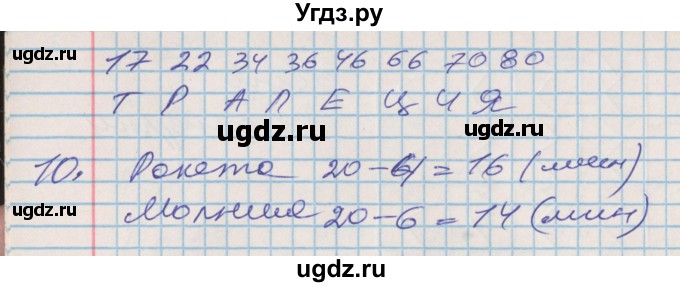 Угдз.ру
ugdz.ru ugdz.ru
17 22 34 36 46 66 70 80
Т Р А П Е Ц И Я
ugdz.ru ugdz.ru
10. Ракета 20 – 4 = 16 (мин)
ugdz.ru ugdz.ru
Молния 20 – 6 = 14 (мин)
ugdz.ru